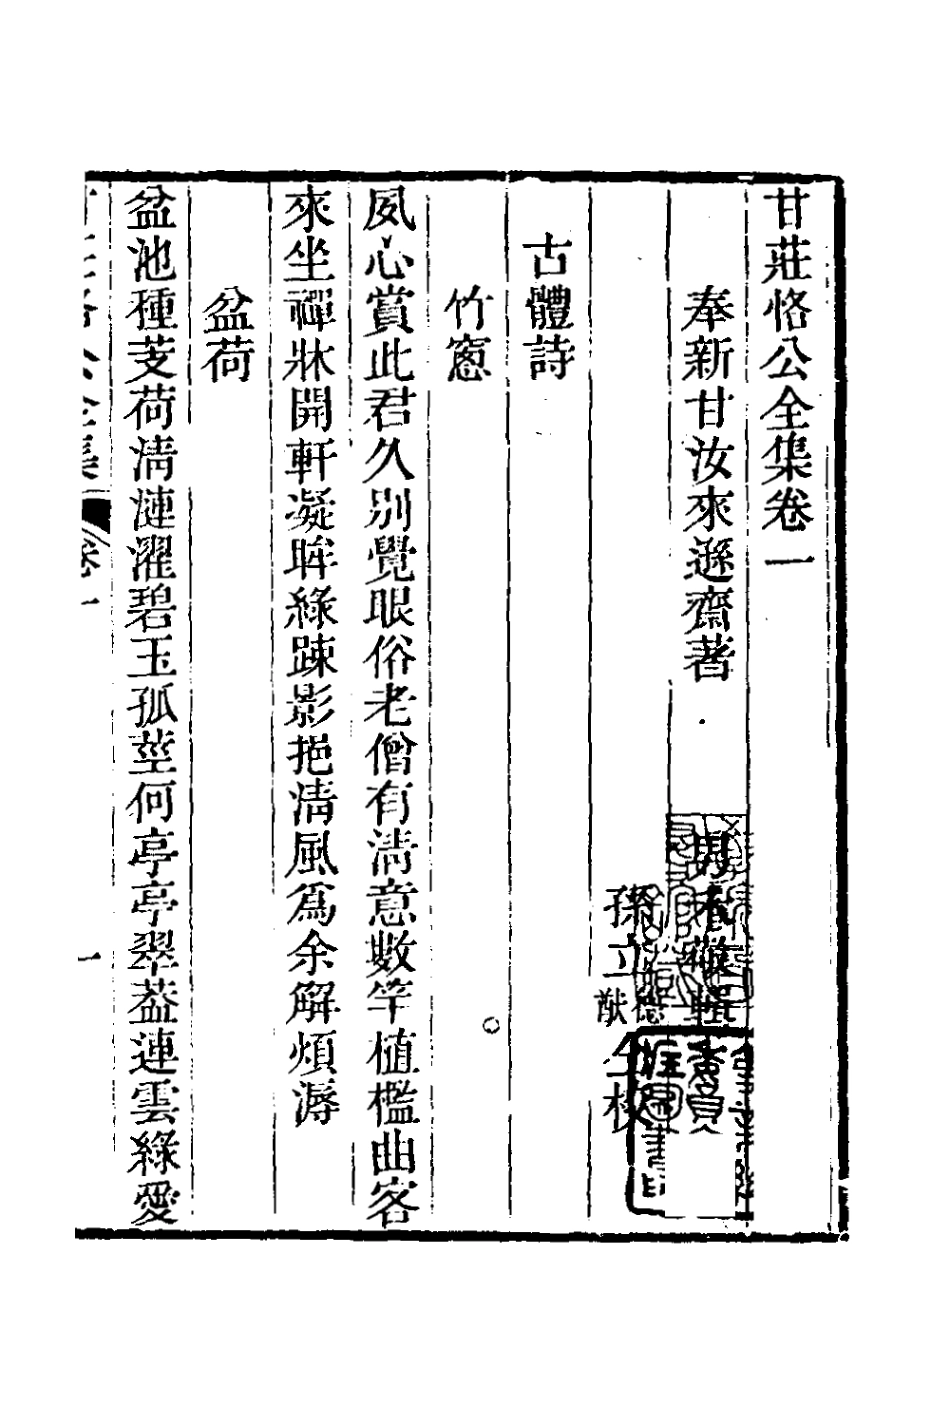 甘莊恪公全集卷一
奉新甘汝來遜齋著
男禾敬輯
孫立猷
仝校
古體詩
竹窻
夙心賞此君久别覺眼俗老僧有淸意數竿植檻曲客
來坐禪牀開軒凝眸綠踈影挹淸風爲余解煩溽
盆荷
盆池種芰荷淸漣濯碧玉孤莖何亭亭翠葢連雲綠愛
卷一
一